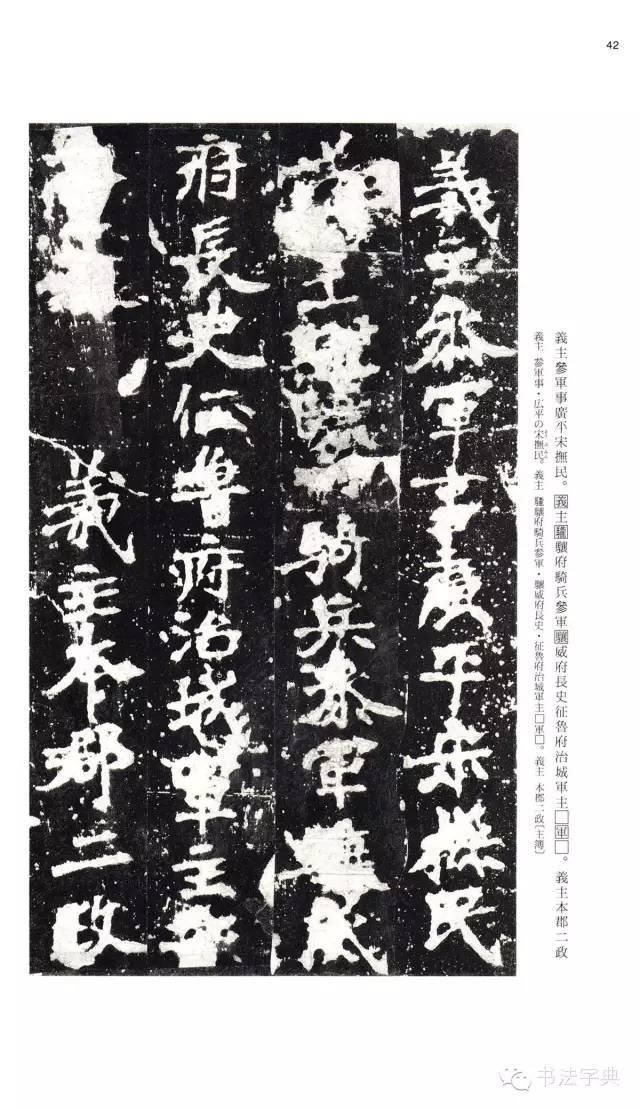 42
義主參軍事廣平宋撫民。義主驤府騎兵參軍驤威府長史征魯府治城軍主□軍□。義主本郡二政
義主 参軍事・広平の宋撫民。義主 驤府騎兵参軍・驤威府長史・征魯府治城軍主□軍□。義主 本郡二政〔主簿〕
義主參軍事廣平宋撫民
主騎兵參軍驤威
府長史征魯府治城軍主
義主本郡二政
书法字典